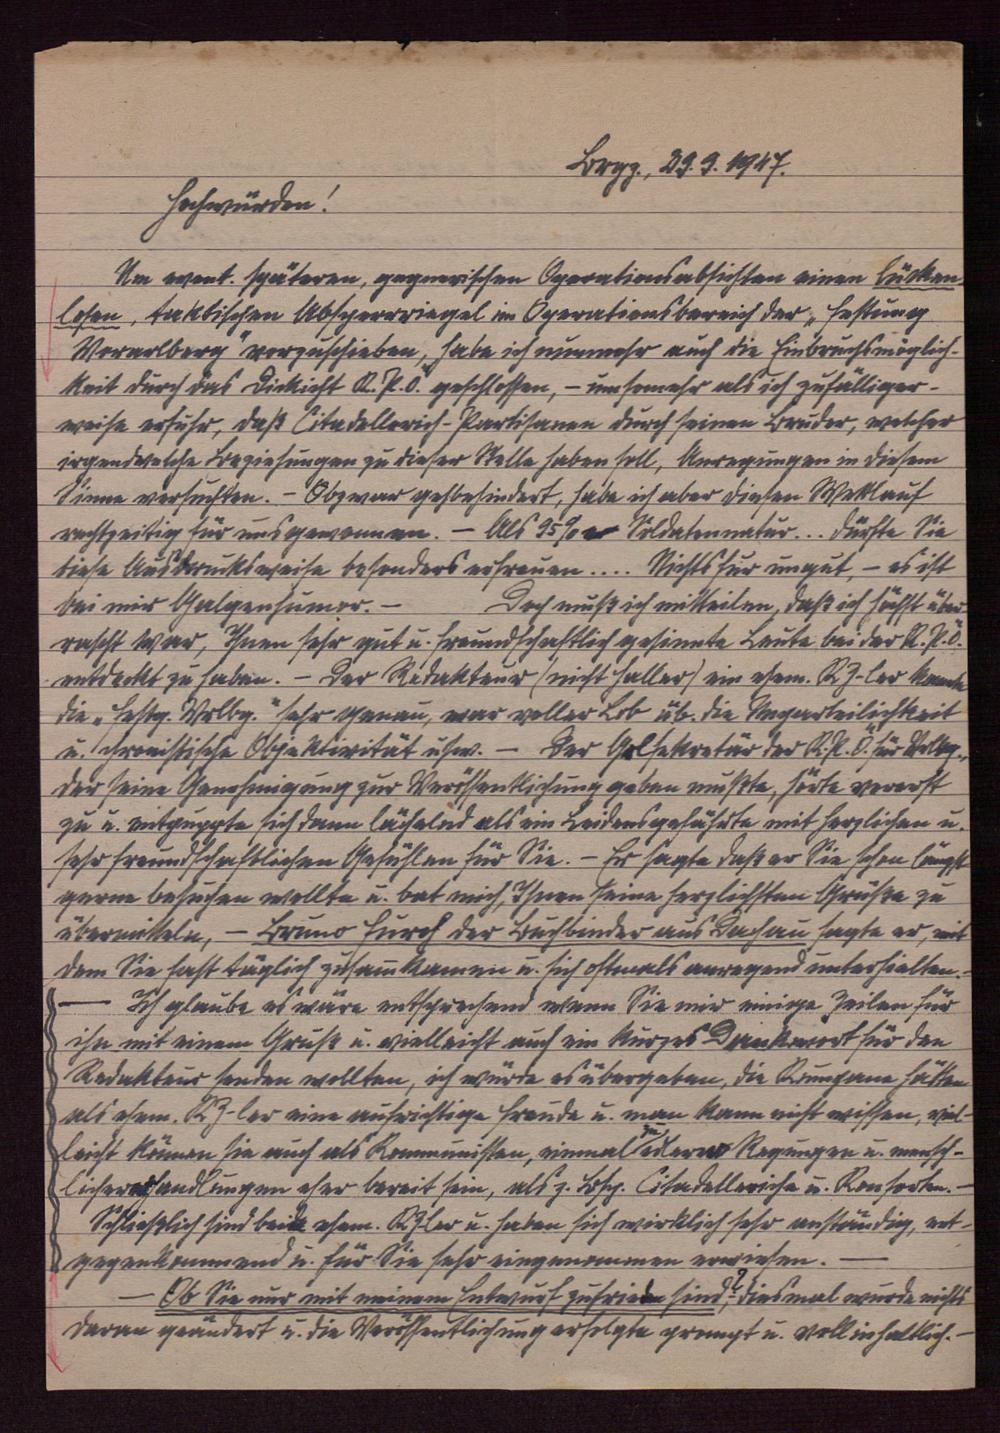 Brgz., 29.9.1947.
Hochwürden!
Um event. späteren, gegnerischen Operationsabsichten einen lücken-
losen, taktischen Absperrriegel im Operationsbereich der „Festung
Vorarlberg" vorzuschieben, habe ich nunmehr auch die Einbruchsmöglich-
keit durch das Dickicht K.P.Ö. geschlossen, – umsomehr als ich zufälliger-
weise erfuhr, daß Citadellerich-Partisanen durch seinen Bruder, welcher
irgendwelche Beziehungen zu dieser Stelle haben soll, Anregungen in diesem
Sinne versuchten. – Obzwar gehbehindert, habe ich aber diesen Wettlauf
rechtzeitig für uns gewonnen. – Als 95% Soldatennatur... dürfte Sie
diese Ausdrucksweise besonders erfreuen.... Nichts für ungut, – es ist
bei mir Galgenhumor. – Doch muß ich mitteilen, daß ich höchst über-
rascht war, Ihnen sehr gut u. freundschaftlich gesinnte Leute bei der K.P.Ö.
entdeckt zu haben. – Der Redakteur (nicht Haller) ein ehem. KZ-ler kannte
die „Festg. Vrlbg." sehr genau, war voller Lob üb. die Unparteilichkeit
u. chronistische Objektivität usw. – Der Gnlsekretär der K.P.Ö. für Vrlbg.,
der seine Genehmigung zur Veröffentlichung geben mußte, hörte vorerst
zu u. entpuppte sich dann lächelnd als ein Leidensgefährte mit herzlichen u.
sehr freundschaftlichen Gefühlen für Sie. – Er sagte daß er Sie schon längst
gerne besuchen wollte u. bat mich, Ihnen seine herzlichsten Grüße zu
übermitteln, – Bruno Furch der Buchbinder aus Dachau sagte er, mit
dem Sie fast täglich zusamkamen u. sich oftmals anregend unterhielten. –
– Ich glaube es wäre entsprechend wenn Sie mir einige Zeilen für
ihn mit einem Gruß u. vielleicht auch ein kurzes Dankwort für den
Redakteur senden wollten, ich würde es übergeben, die Kumpane hätten
als ehem. KZ-ler eine aufrichtige Freude u. man kann nicht wissen, viel-
leicht können sie auch als Kommunisten, einmal zu edleren Regungen u. mensch-
licheren Handlungen eher bereit sein, als z. Bsp. Citadelleriche u. Konsorten. –
Schließlich sind beide ehem. KZler u. haben sich wirklich sehr anständig, ent-
gegenkommend u. für Sie sehr eingenommen erwiesen. –
– Ob Sie nur mit meinem Entwurf zufrieden sind? diesmal wurde nichts
daran geändert u. die Veröffentlichung erfolgte prompt u. vollinhaltlich. –